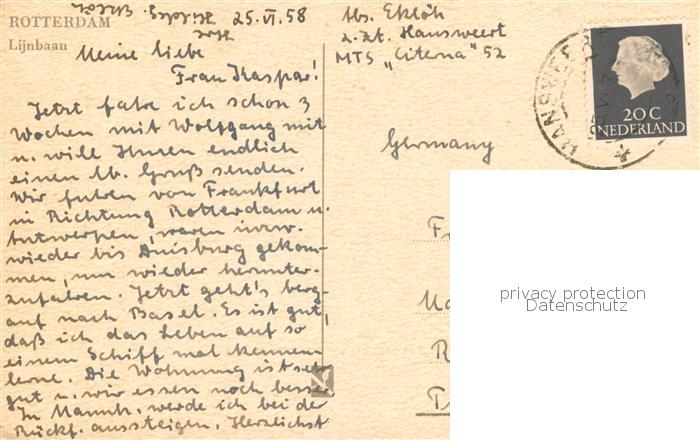 ROTTERDAM
Lijnbaan
25.VI.58
Meine liebe
Frau Kaspar!
Jetzt fahre ich schon 3
Wochen mit Wolfgang mit
u. will Ihnen endlich
einen lb. Gruß senden.
Wir fuhren von Frankfurt
in Richtung Rotterdam u.
Antwerpen, waren inzw.
wieder bis Duisburg gekom-
men, um wieder herunter-
zufahren. Jetzt geht's berg-
auf nach Basel. Es ist gut,
daß ich das Leben auf so
einem Schiff mal kennen-
lerne. Die Wohnung ist sehr
gut u. wir essen noch besser
In Mannh. werde ich bei der
Rückf. aussteigen. Herzlichst
Ihre
Hildeg. Eklöh
Abs. Eklöh
z. Zt. Hansweert
MTS „Citerna" 52
Germany
20 C
NEDERLAND
HANSWEERT
privacy protection
Datenschutz